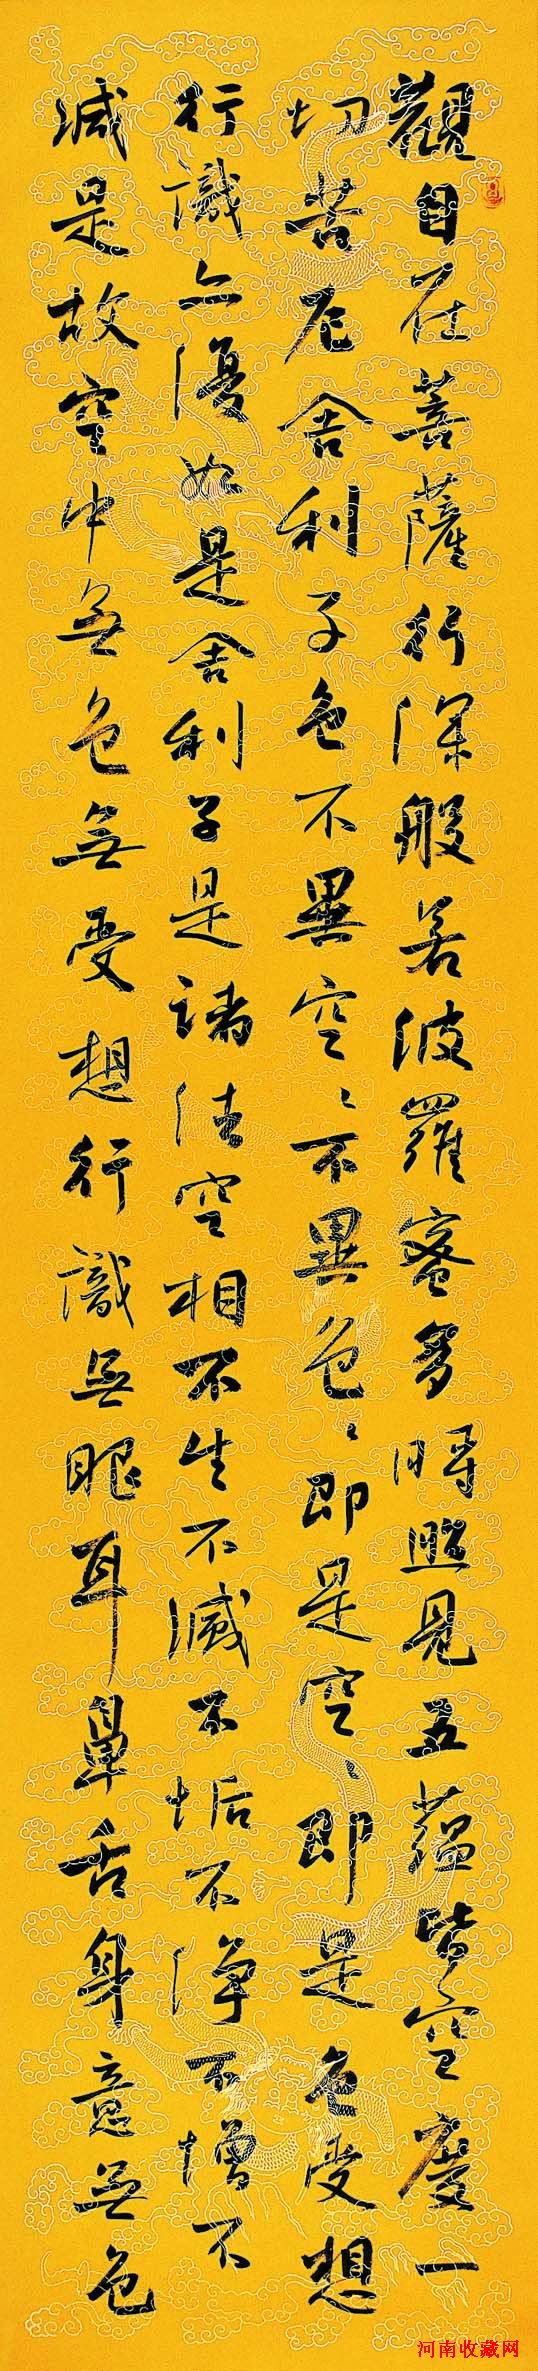 觀自在菩薩行深般若波羅蜜多時照見五蘊皆空度一
切苦厄舍利子色不異空〻不異色〻即是空〻即是色受想
行識亦復如是舍利子是諸法空相不生不滅不垢不淨不增不
減是故空中無色無受想行識無眼耳鼻舌身意無色
河南收藏网